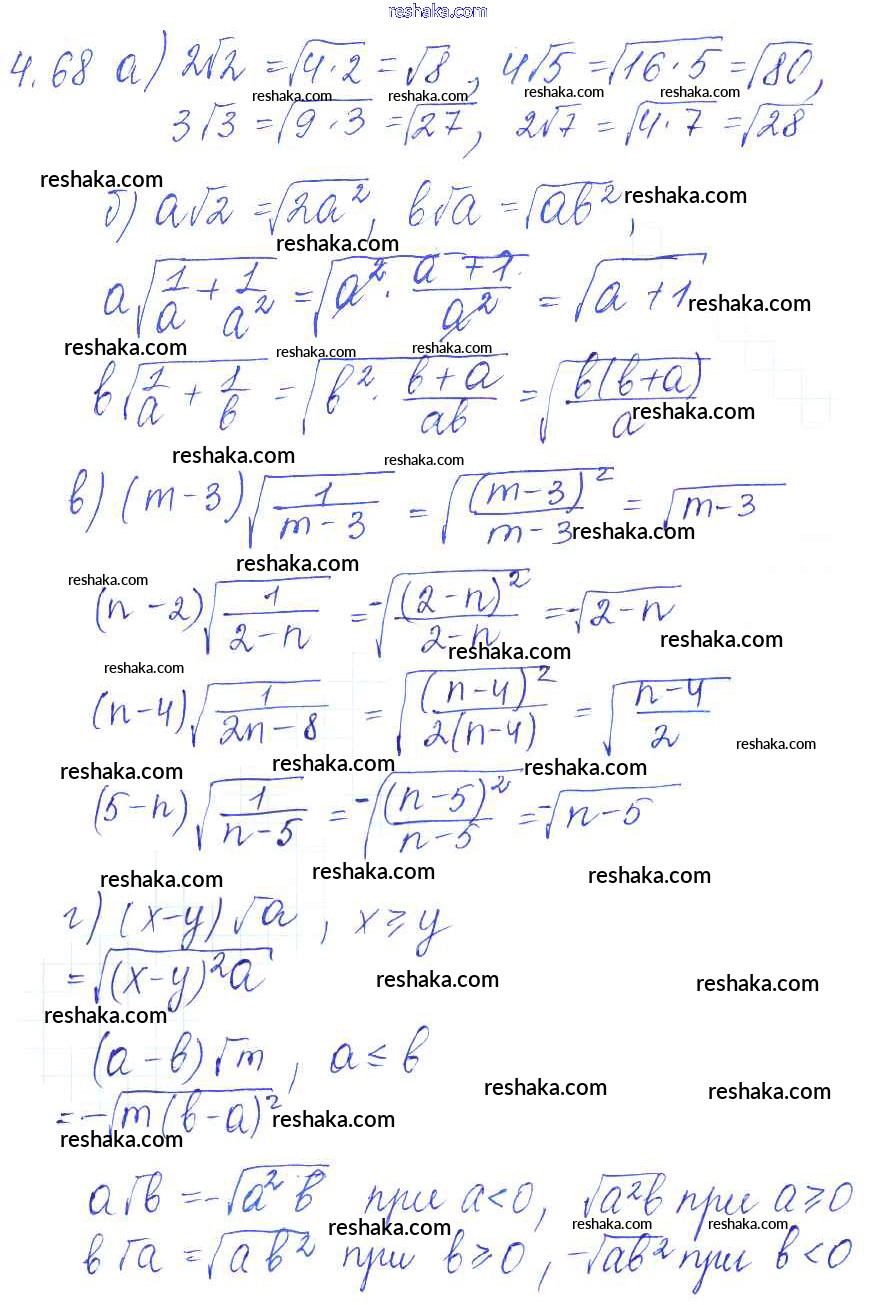 reshaka.com
4.68 а) 2√2 = √(4·2) = √8, 4√5 = √(16·5) = √80,
reshaka.com reshaka.com reshaka.com reshaka.com
3√3 = √(9·3) = √27, 2√7 = √(4·7) = √28
reshaka.com
б) a√2 = √(2a²), b√a = √(ab²),
reshaka.com
reshaka.com
a√(1/a + 1/a²) = √(a² · (a+1)/a²) = √(a+1)
reshaka.com
reshaka.com reshaka.com reshaka.com
b√(1/a + 1/b) = √(b² · (b+a)/ab) = √(b(b+a)/a)
reshaka.com
reshaka.com reshaka.com
в) (m-3)√(1/(m-3)) = √((m-3)²/(m-3)) = √(m-3)
reshaka.com
reshaka.com
reshaka.com
(n-2)√(1/(2-n)) = -√((2-n)²/(2-n)) = -√(2-n)
reshaka.com reshaka.com
reshaka.com
(n-4)√(1/(2n-8)) = √((n-4)²/(2(n-4))) = √((n-4)/2)
reshaka.com
reshaka.com reshaka.com reshaka.com
(5-n)√(1/(n-5)) = -√((n-5)²/(n-5)) = -√(n-5)
reshaka.com reshaka.com reshaka.com
г) (x-y)√a, x ≥ y
= √((x-y)²a)
reshaka.com reshaka.com
reshaka.com
(a-b)√m, a ≤ b
reshaka.com reshaka.com
= -√(m(b-a)²)
reshaka.com
reshaka.com
a√b = -√(a²b) при a<0, √(a²b) при a≥0
reshaka.com reshaka.com reshaka.com
b√a = √(ab²) при b≥0, -√(ab²) при b<0